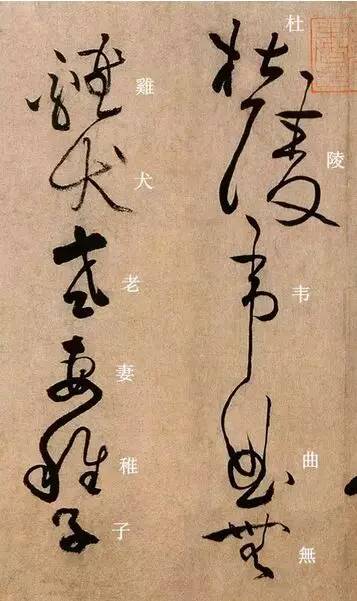 杜陵韦曲無
杜陵韋曲無
雞犬老妻稚子
雞犬老妻稚子